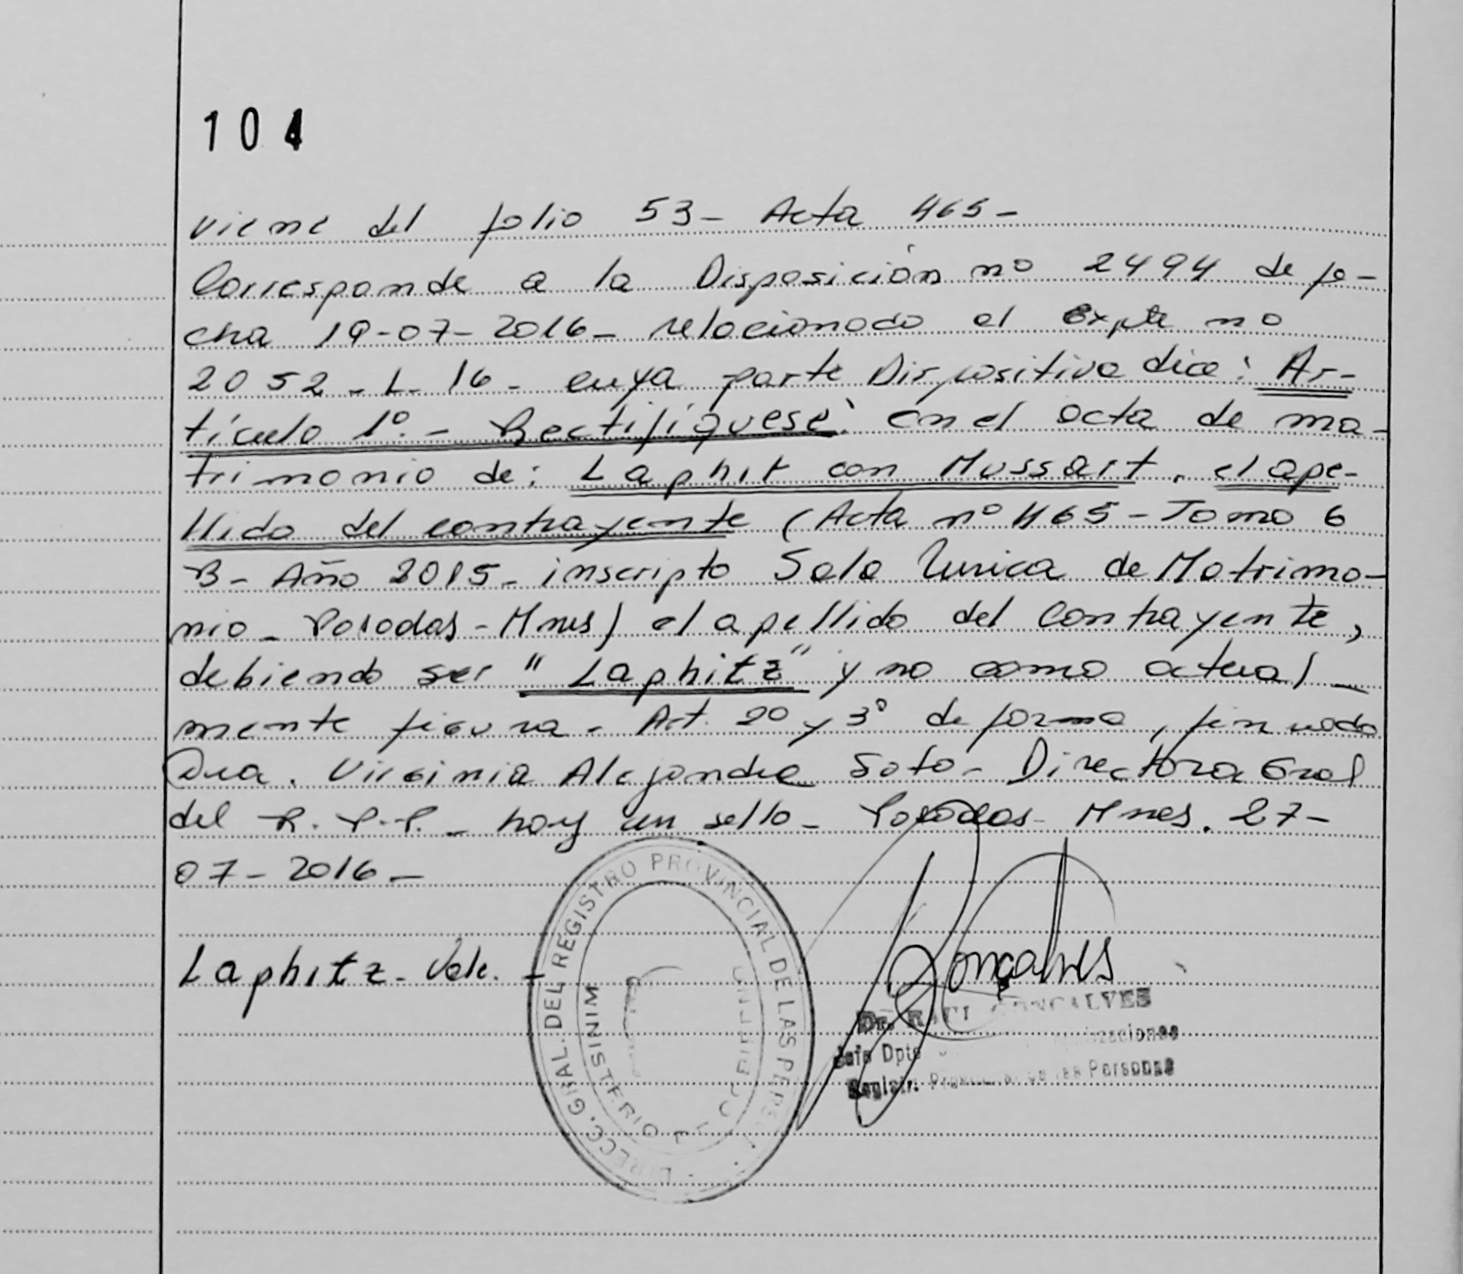 104
Viene del folio 53- Acta 465-
Corresponde a la Disposición nº 2494 de fe-
cha 19-07-2016- relacionado al expte nº
2052-L-16- cuya parte Dispositiva dice: Ar-
tículo 1º.- Rectifíquese: en el acta de ma-
trimonio de: Laphit con Mussart, el ape-
llido del contrayente (Acta nº 465-Tomo 6
B- Año 2015- inscripto Sala Unica de Matrimo-
nio- Posadas-Mnes) el apellido del contrayente,
debiendo ser "Laphitz" y no como actual-
mente figura. Art. 2º y 3º de forma, firmado
Dra. Virginia Alejandra Soto- Directora Gral
del R.P.P.- hay un sello- Posadas- Mnes. 27-
07-2016-
Laphitz- Vale.-
DIRECC. GRAL. DEL REGISTRO PROVINCIAL DE LAS PERS
MINISTERIO DE GOBIERNO
Gonçalves
Dr. RAUL GONCALVES
Jefe Dpto
Registro Provincial de las Personas